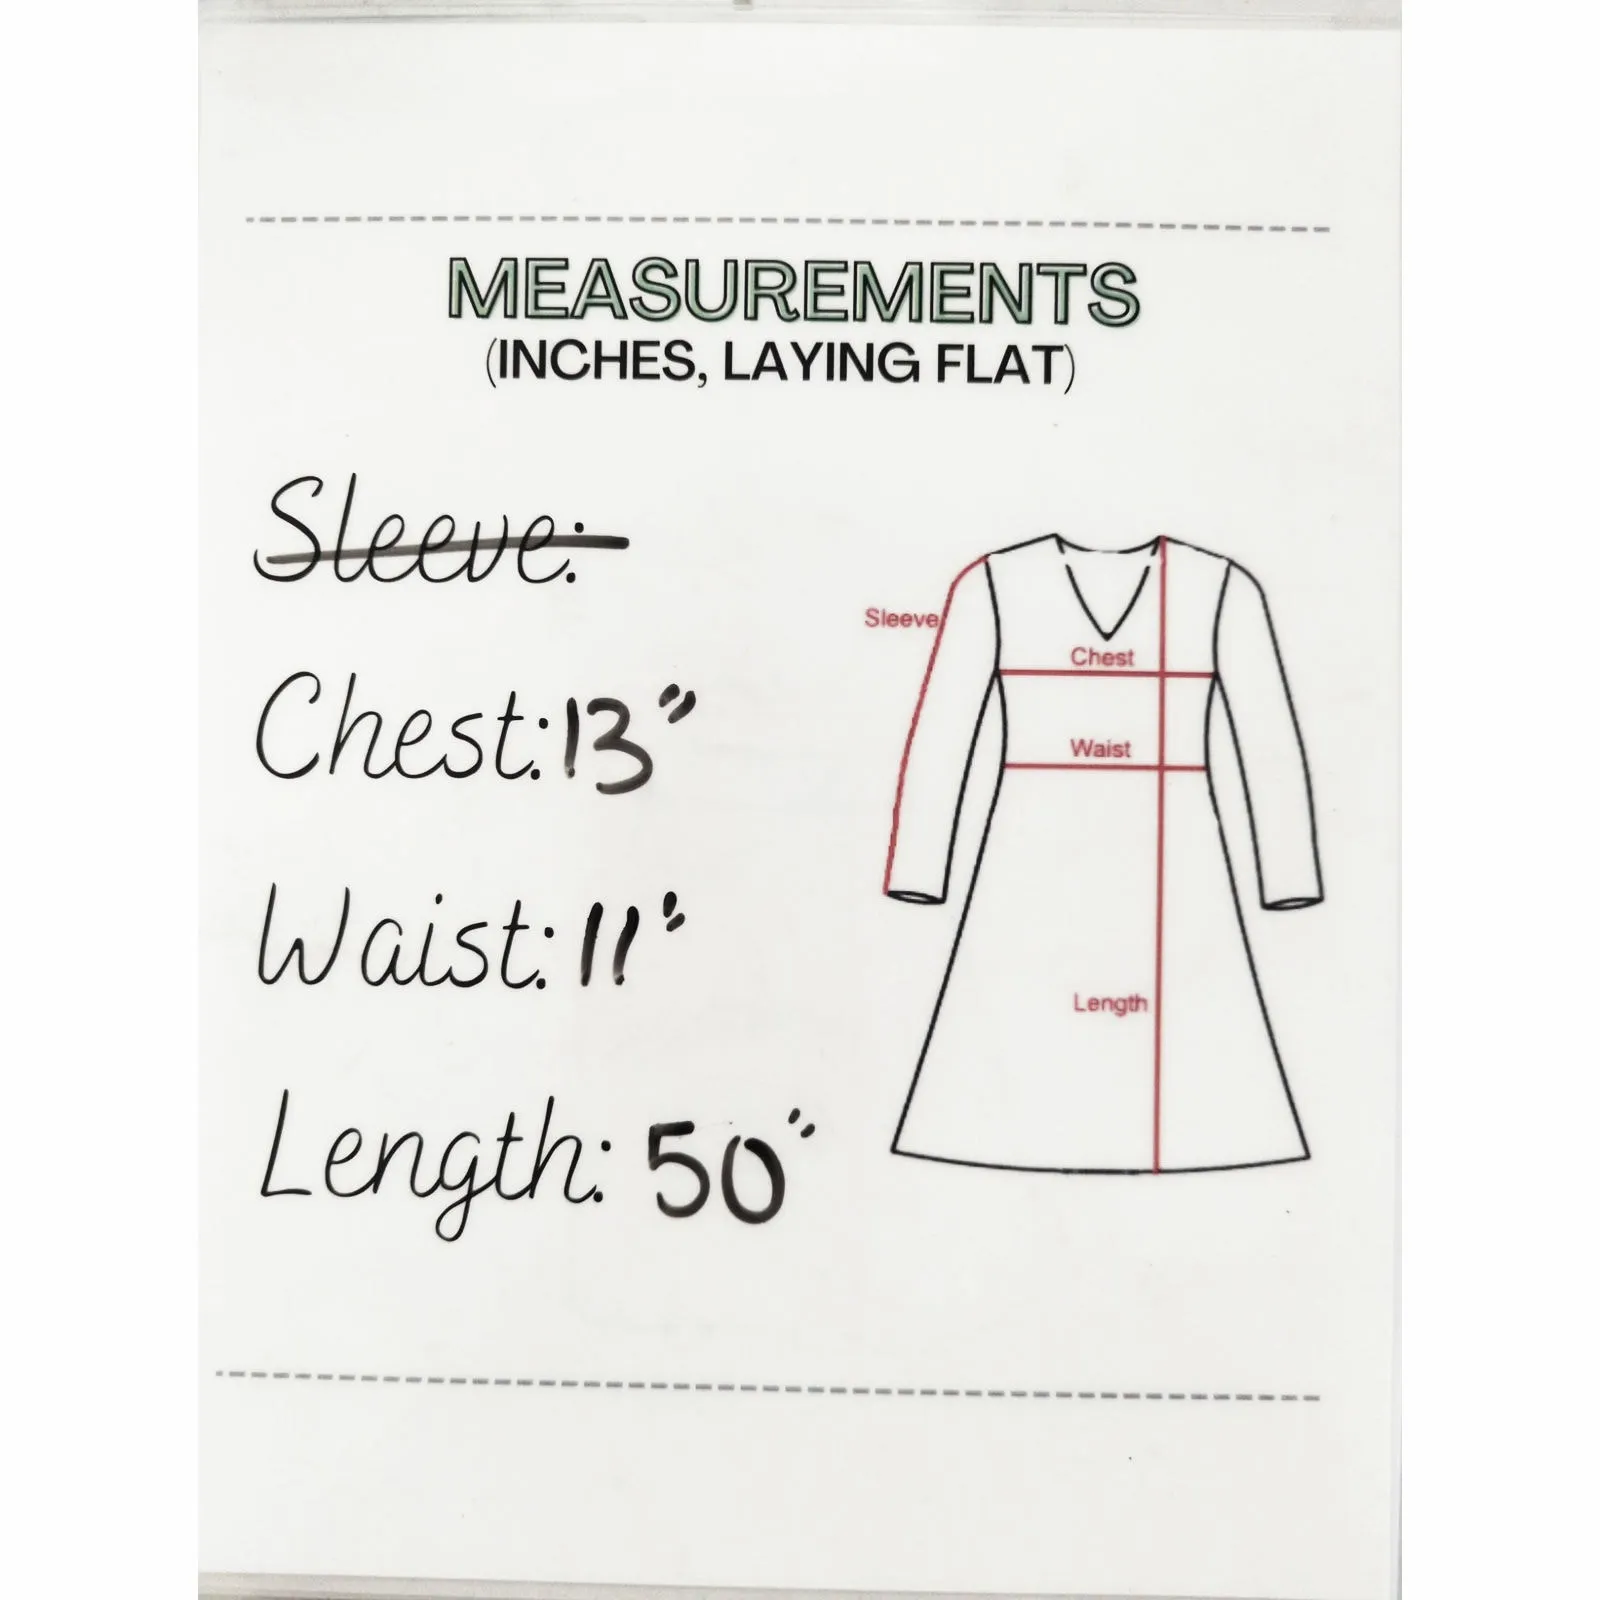 MEASUREMENTS
(INCHES, LAYING FLAT)
Sleeve:
Chest: 13"
Waist: 11"
Length: 50"
Sleeve
Chest
Waist
Length